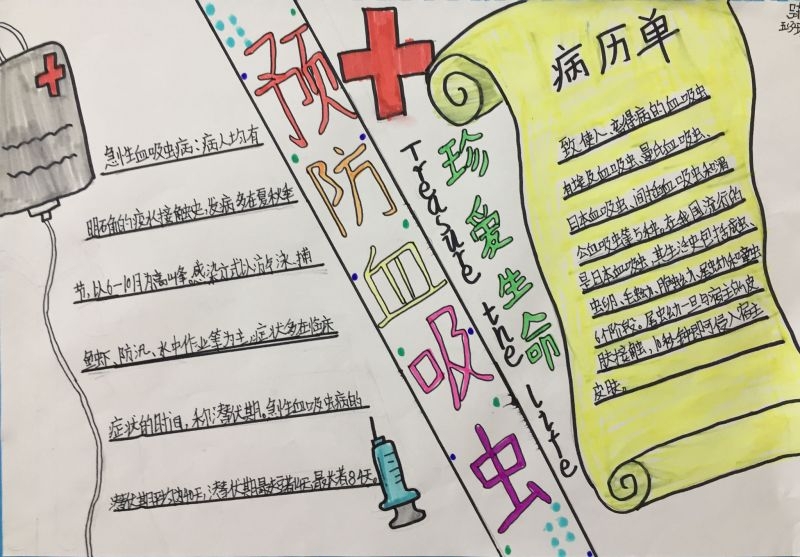 急性血吸虫病：病人均有
明确的疫水接触史，发病多在夏秋季
节，以6-10月为高峰，感染方式以游泳、捕
鱼虾、防汛、水中作业等为主，症状多在临床
症状的时间，称潜伏期。急性血吸虫病的
潜伏期平均为40天；潜伏期最短者
最长者84天。
预防血吸虫
珍爱生命
Treasure the Life
病历单
致使人患得病的血吸虫
有埃及血吸虫、曼氏血吸虫、
日本血吸虫、间插血吸虫和湄
公血吸虫等5种。在我国流行的
是日本血吸虫，其生活史包括成虫、
虫卵、毛蚴、胞蚴、尾蚴和童虫
6个阶段。尾虫幼一旦与宿主的皮
肤接触，10秒钟即可侵入宿主
皮肤。